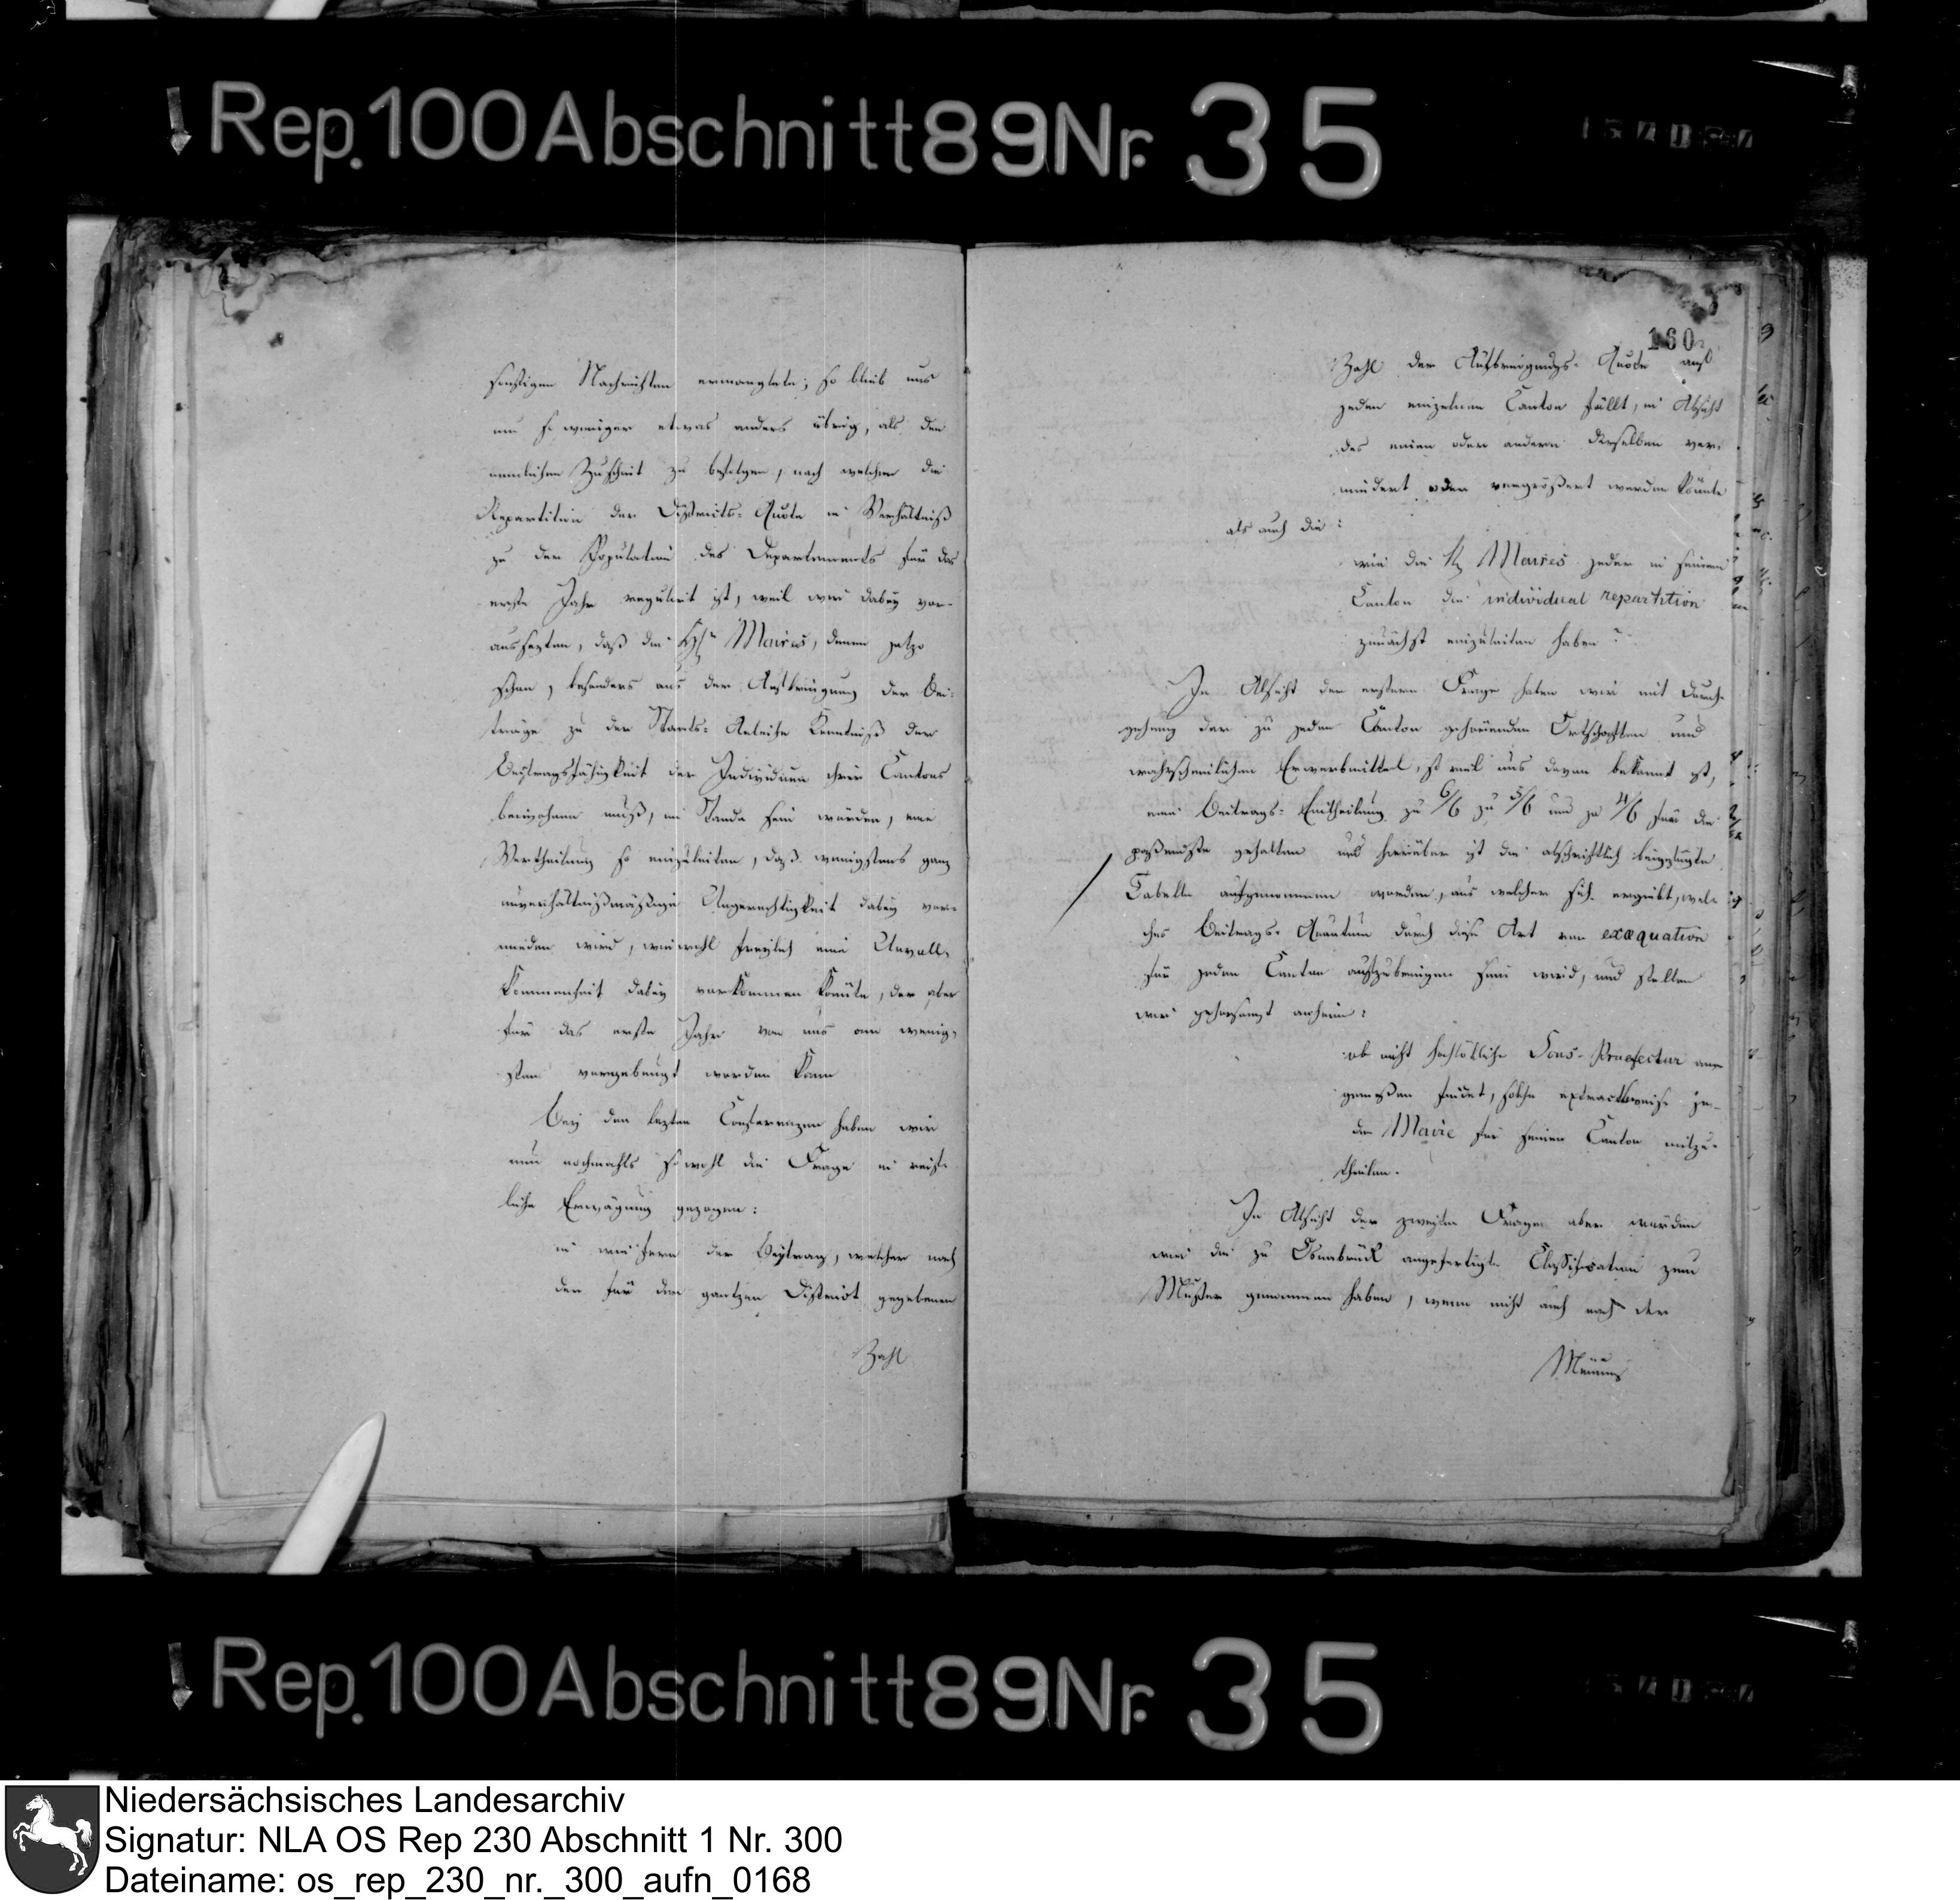 Rep. 100 Abschnitt 89 Nr. 35
sonstigen Nachrichten ermangelte; so blieb uns
um so weniger etwas anders übrig, als den
nemlichen zu befolgen, nach welchem die
Repartition der Districts-Quote in Verhältniß
zu der Population des Departements für das
erste Jahr regulirt ist, weil wir dabey vor-
aussezten, daß die Maires, denen jetzo
schon, besonders aus der Aufbringung der Bei-
träge zu der Staats-Anleihe Kenntniß der
Beytragsfähigkeit der Individuen ihrer Cantons
beiwohnen muß, im Stande sein würden, eine
Vertheilung so einzuleiten, daß wenigstens ganz
unverhältnißmäßige Ungerechtigkeit dabey ver-
mieden wird, wiewohl freylich eine Unvoll-
kommenheit dabey vorkommen könnte, der aber
für das erste Jahr von uns am wenig-
sten vorgebeugt werden kann
Bey den lezten Conferenzen haben wir
nun nochmahls sowohl die Frage in reif-
liche Erwägung gezogen:
in wie fern der Beytrag, welcher nach
der für den gantzen District gegebenen
Zahl
160
Zahl der Aufbringungs-Quote auf
jeden einzelnen Canton fällt, in Absicht
des einen oder andern derselben ver-
mindert oder vergrößert werden könnte
als auch die:
wie die Maires jeder in seinem
Canton die individual repartition
zunächst einzuleiten haben?
In Absicht der erstern Frage haben wir mit Durch-
gehung der zu jedem Canton gehörenden Ortschaften und
wahrscheinlichen Erwerbmittel, so viel uns davon bekannt ist,
eine Beitrags-Eintheilung zu 6/6 zu 5/6 und zu 4/6 für die
paßendste gehalten und hierüber ist die abschriftlich beigefügte
Tabelle aufgenommen worden, aus welcher sich ergiebt, wel-
ches Beitrags-Quantum durch diese Art von exæquation
für jeden Canton aufzubringen sein wird, und stellen
wir gehorsamst anheim:
ob nicht hochlöbliche Sous-Praefectur ange-
gemeßen findet, solche extractsweise je-
dem Maire für seinen Canton mitzu-
theilen.
In Absicht der zweyten Frage aber würden
wir die zu Osnabrück angefertigte Classification zum
Muster genommen haben, wenn nicht auch nach der
Meinung
Rep. 100 Abschnitt 89 Nr. 35
Niedersächsisches Landesarchiv
Signatur: NLA OS Rep 230 Abschnitt 1 Nr. 300
Dateiname: os_rep_230_nr._300_aufn_0168